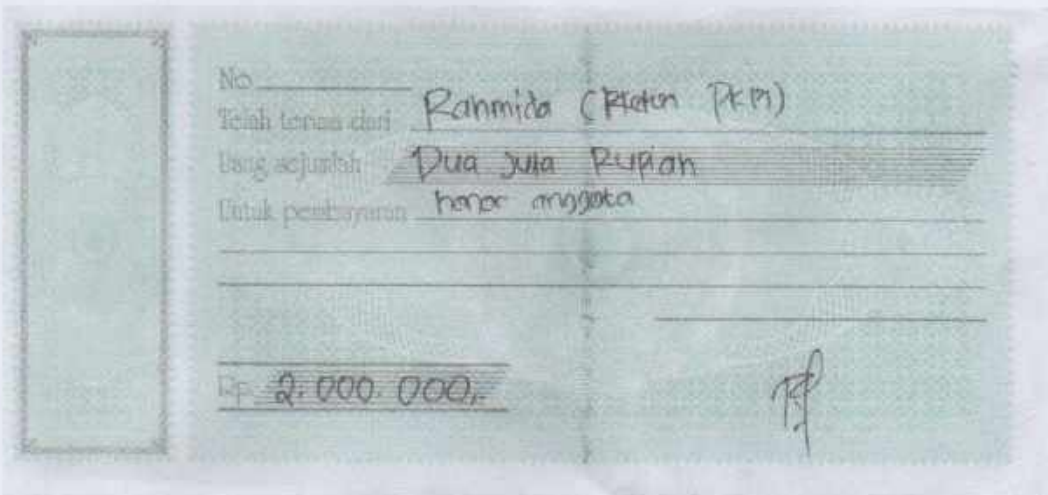 No
Telah terima dari Rahmida (Ketua PKM)
Uang sejumlah Dua Juta Rupiah
Untuk pembayaran honor anggota
Rp. 2.000.000,-